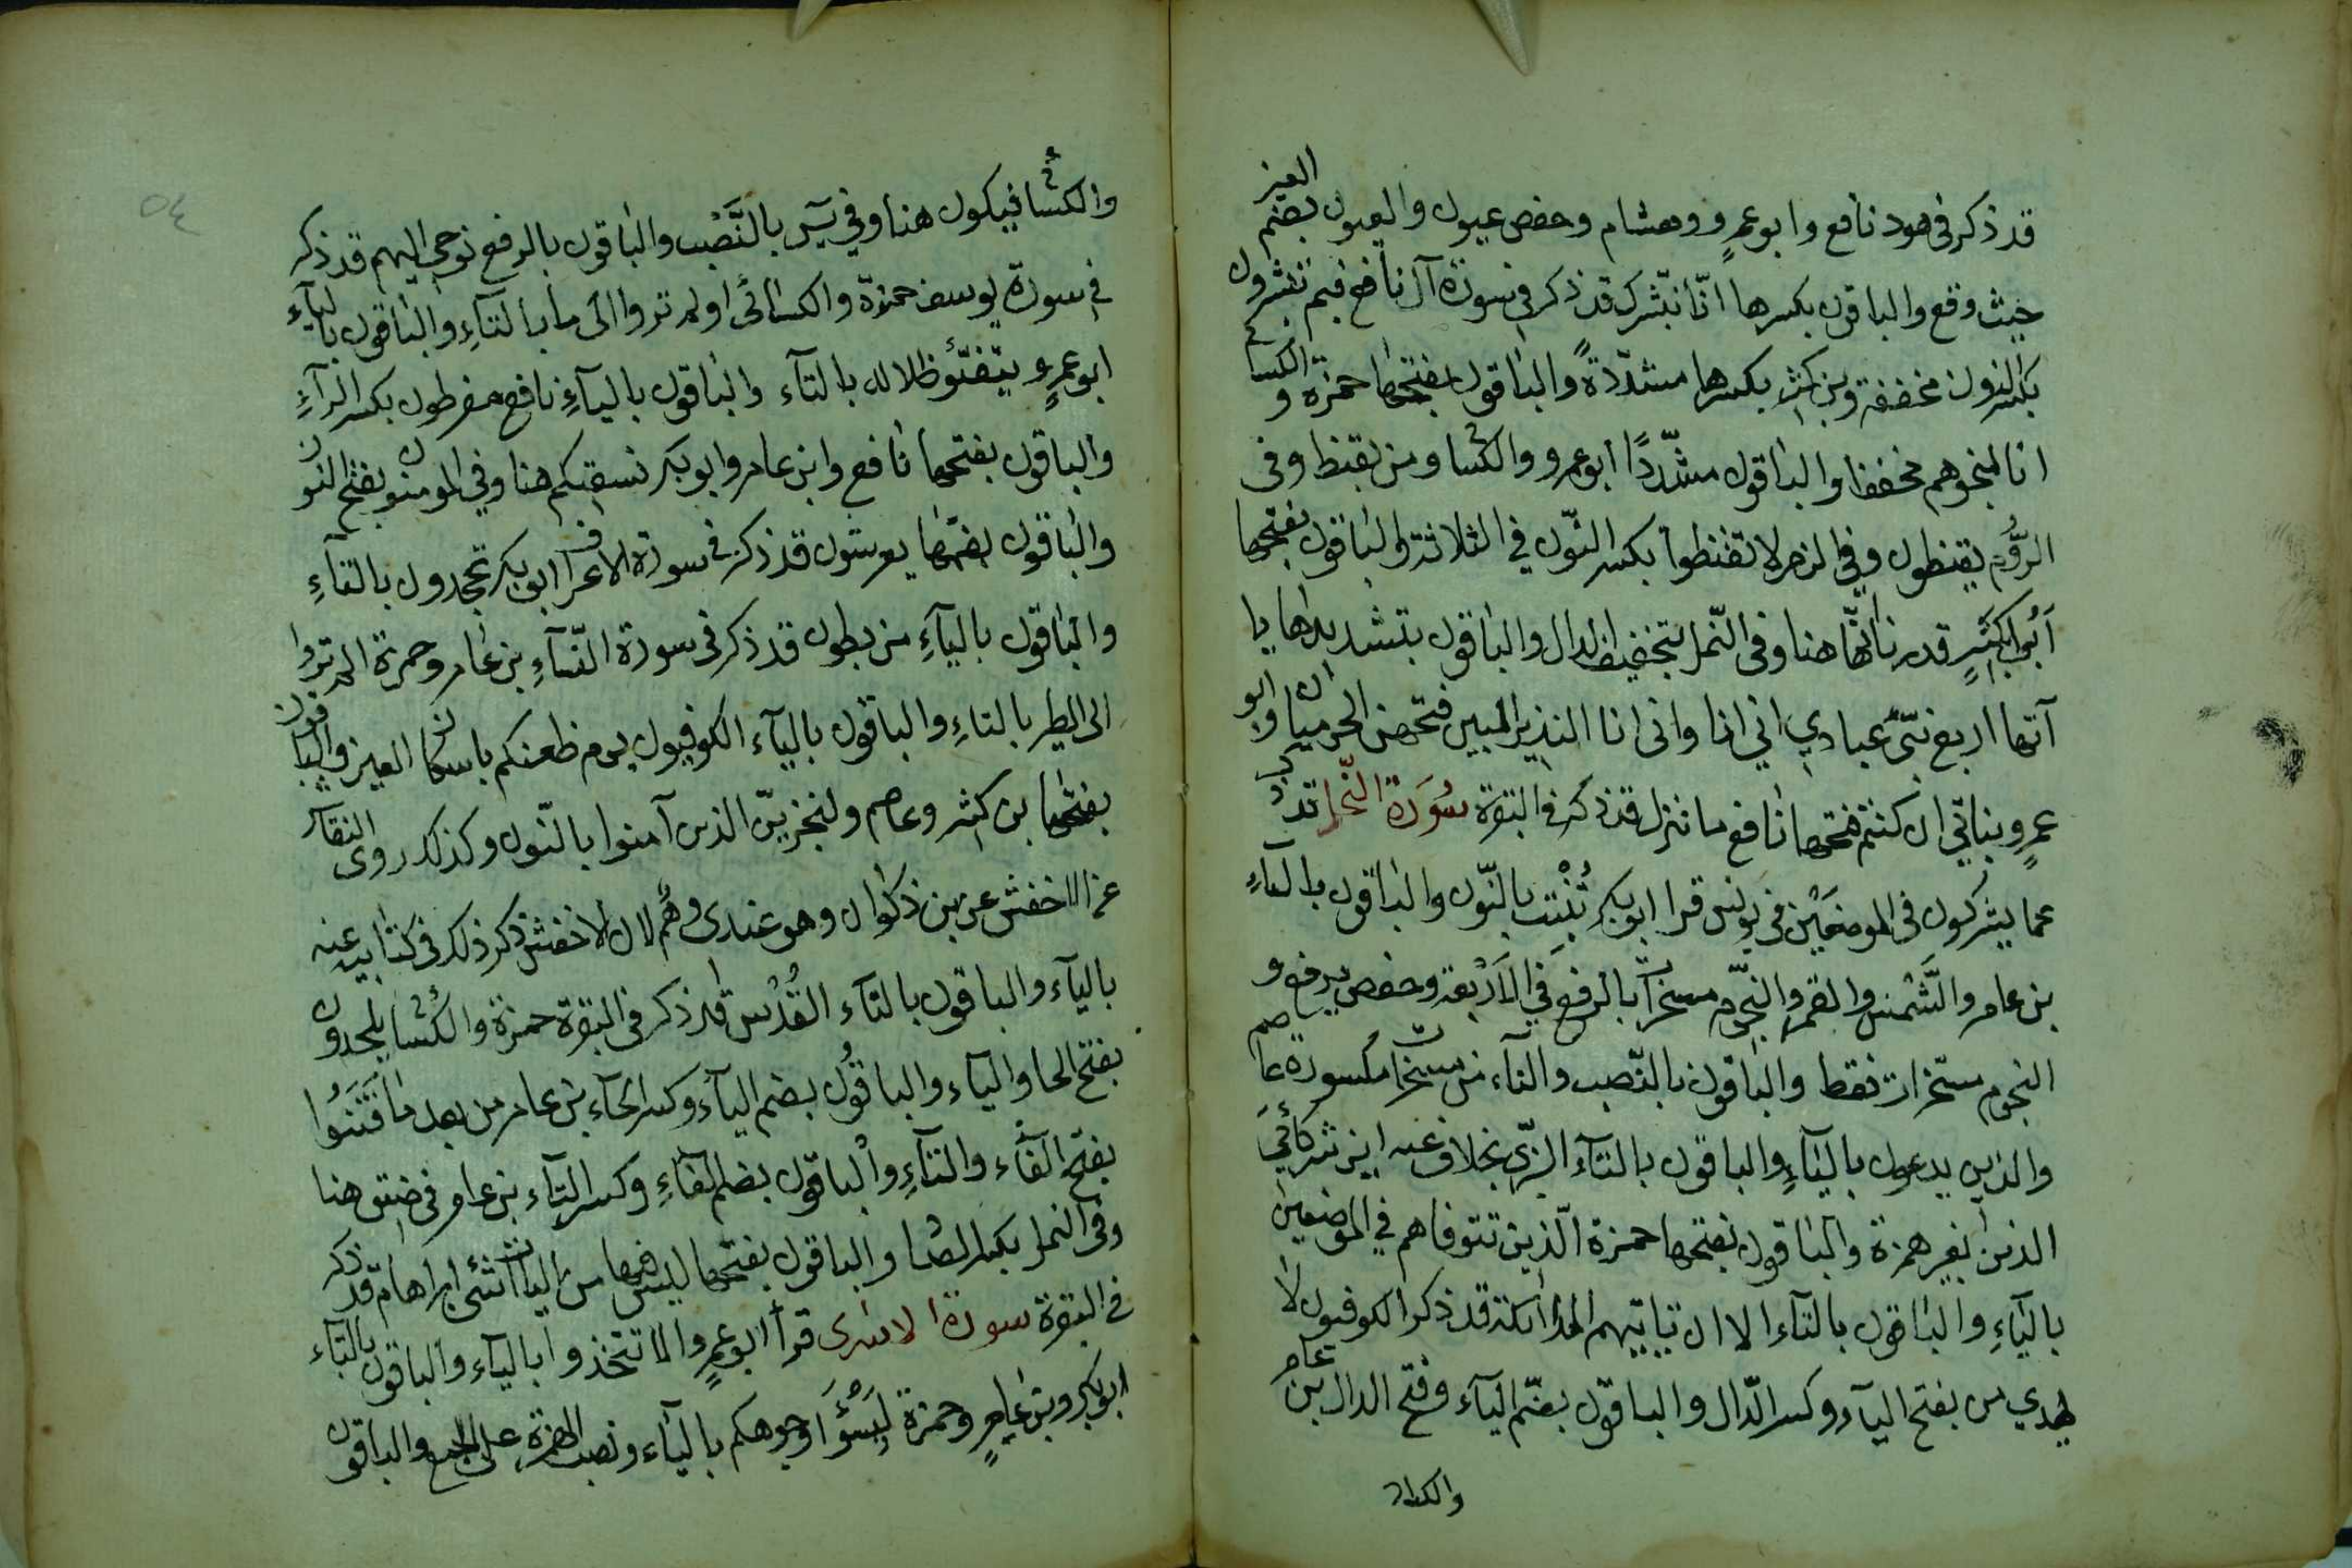 قد ذكر فى هود نافع وابو عمرٍو وهشام وحفص عيون والعيون بضم العين
حيث وقع والباقون بكسرها انّا نبّشرك قد ذكر فى سورة آل نافع فبم تبشرون
بكسر النون مخففة وبن كثير بكسرها مشدّدةً والباقون بفتحها حمزة والكسائى
انا لمنجوهم مخففا والباقون مشدّدًا ابو عمرو والكسائى ومن يقنط وفى
الرّوم يقنطون وفى الزمر لا تقنطوا بكسر النّون فى الثلاثة والباقون بفتحها
أبو بكرٍ قدرنا انّها هنا وفى النّمل بتخفيف الدال والباقون بتشديدها يا
آتها اربع نبّئ عبادي اني انا وانى انا النذير المبين فتحهن الحرميان وابو
عمرٍو بناتي ان كنتم فتحها نافع ما ننزل قد ذكر فى البقرة سُورَة النّحل قد ذكر
عما يشركون فى الموضعين فى يونس قرا ابو بكر نُنْبِت بالنّون والباقون بالياءِ
بن عامر والشّمسُ والقمر والنجّوم مسخرات بالرفع فَي الاَرْبعة وحفص يرفع و
النجوم مسخرات فقط والباقون بالنّصب والتاء من مسخرات مكسورة عاصم
والذين يدعون بالياءِ والباقون بالتآء البزّى بخلاف عنه اين شركائيَ
الذين بغير همزة والباقون بفتحها حمزة الّذين تتوفاهم في الموضعين
بالياءِ والباقون بالتآء الا ان تاتيهم الملائكة قد ذكر الكوفيون لا
يهدي من بفتح اليآء وكسر الدّال والباقون بضّم اليآء وفتح الدال بن عامر
والكسائى
والكسائى فيكون هنا وفي يسٓ بالنَّصْب والباقون بالرفع نوحى اليهم قد ذكر
فى سورة يوسف حمزة والكسائى اولم تروا الى ما بالتآءِ والباقون بالياءِ
ابو عمرٍو يتفيّؤ ظلاله بالتآء والباقون باليآءِ نافع مفرطون بكسر الرآءِ
والباقون بفتحها نافع وابن عامر وابو بكر نسقيكم هنا وفي المومنون بفتح النون
والباقون بضمّها يعرشون قد ذكر فى سورة الاعراف ابو بكر تجحدون بالتآءِ
والباقون باليآءِ من بطون قد ذكر فى سورة النّسآءِ بن عامر وحمزة الم تروا
الى الطير بالتاءِ والباقون باليآء الكوفيون يوم ظعنكم باسكان العين والباقون
بفتحها بن كثير وعاصم ولنجزينّ الذين آمنوا بالنّون وكذلك روى النقاش
عن الاخفش عن بن ذكوان وهو عندى وهم لان الاخفش ذكر ذلك فى كتابيه عنه
باليآء والباقون بالتآء القُدُس قد ذكر فى البقرة حمزة والكسائى يلحدون
بفتح الحا واليآء والباقون بضم اليآء وكسر الحآء بن عامر من بعد ما فَتَنُوا
بفتح الفآء والتآءِ والباقون بضم الفآءِ وكسر التآء بن عامر فى ضيق هنا
وفى النمل بكسر الضاد والباقون بفتحها ليس فيها من الياات شئ ابراهام قد ذكر
فى البقرة سورة الاسرى قرأ ابو عمرٍو الا تتخذوا باليآء والباقون بالتآء
ابو بكر وبن عامرٍ وحمزة لِيَسُوٓءَا وجوهكم باليآء ونصب الهمزة على الجمع والباقون